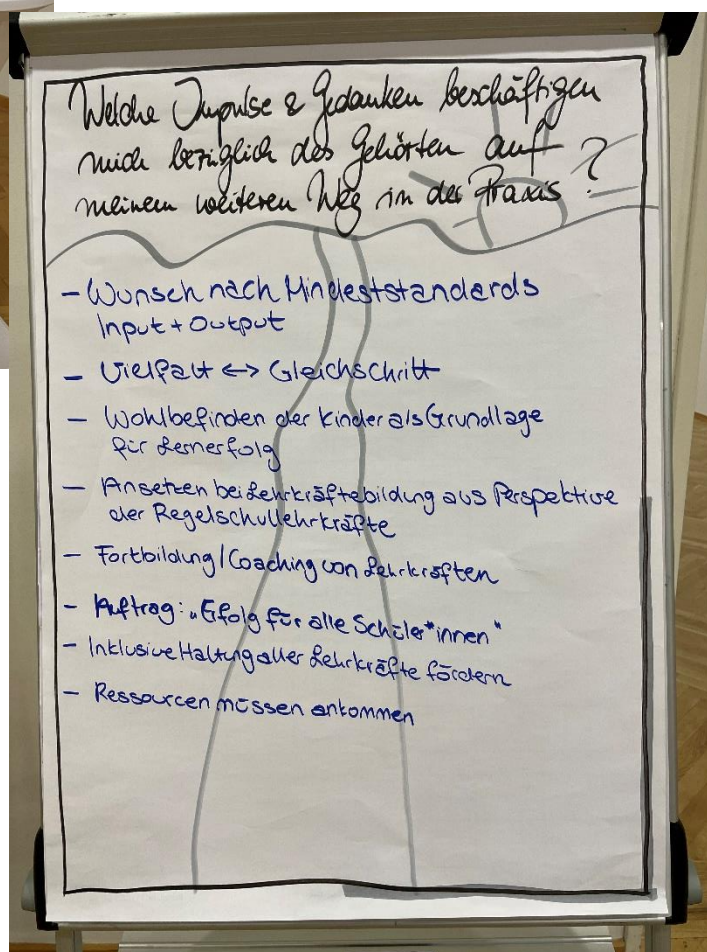 Welche Impulse & Gedanken beschäftigen
mich bezüglich des Gehörten auf
meinem weiteren Weg in der Praxis?
- Wunsch nach Mindeststandards
Input + Output
- Vielfalt <-> Gleichschritt
- Wohlbefinden der Kinder als Grundlage
für Lernerfolg
- Ansetzen bei Lehrkräftebildung aus Perspektive
der Regelschullehrkräfte
- Fortbildung/Coaching von Lehrkräften
- Auftrag: „Erfolg für alle Schüler*innen"
- Inklusive Haltung aller Lehrkräfte fördern
- Ressourcen müssen ankommen